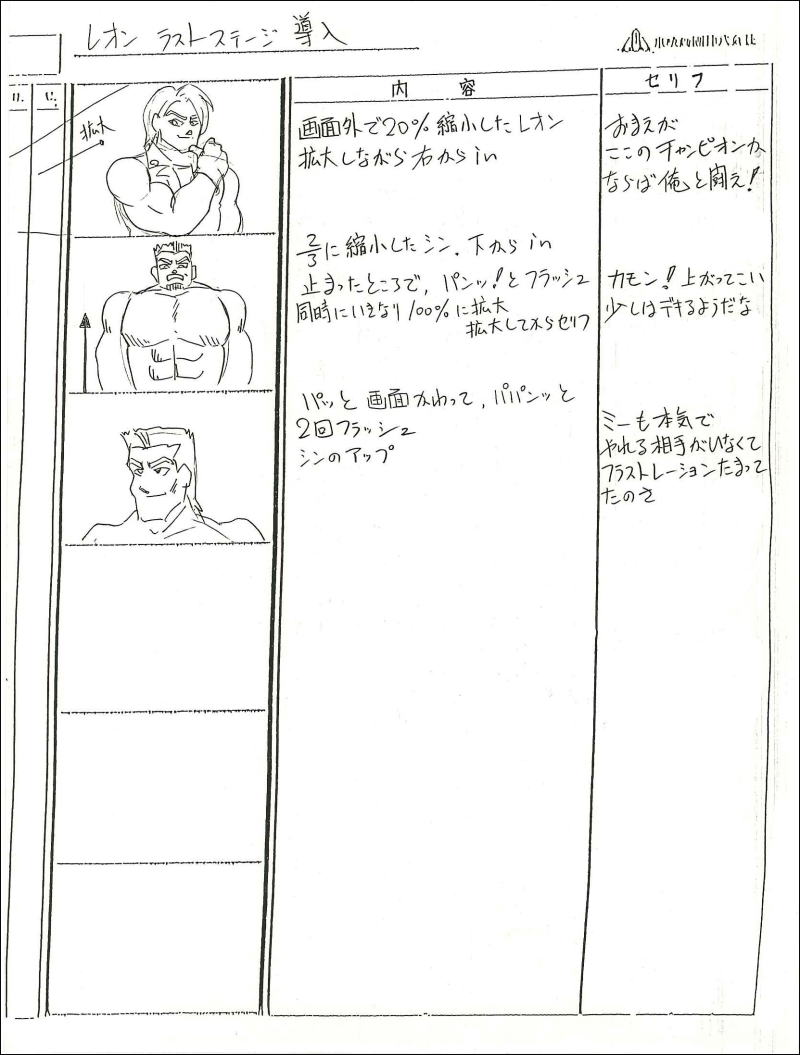 レオン ラストステージ 導入
内 容
セリフ
拡大
画面外で20%縮小したレオン
拡大しながら右からin
おまえが
ここのチャンピオンか
ならば俺と闘え!
2/3に縮小したシン.下からin
止まったところで,パンッ!とフラッシュ
同時にいきなり100%に拡大
拡大してからセリフ
カモン!上がってこい
少しはデキるようだな
パッと画面かわって,パパンッと
2回フラッシュ
シンのアップ
ミーも本気で
やれる相手がいなくて
フラストレーションたまって
たのさ